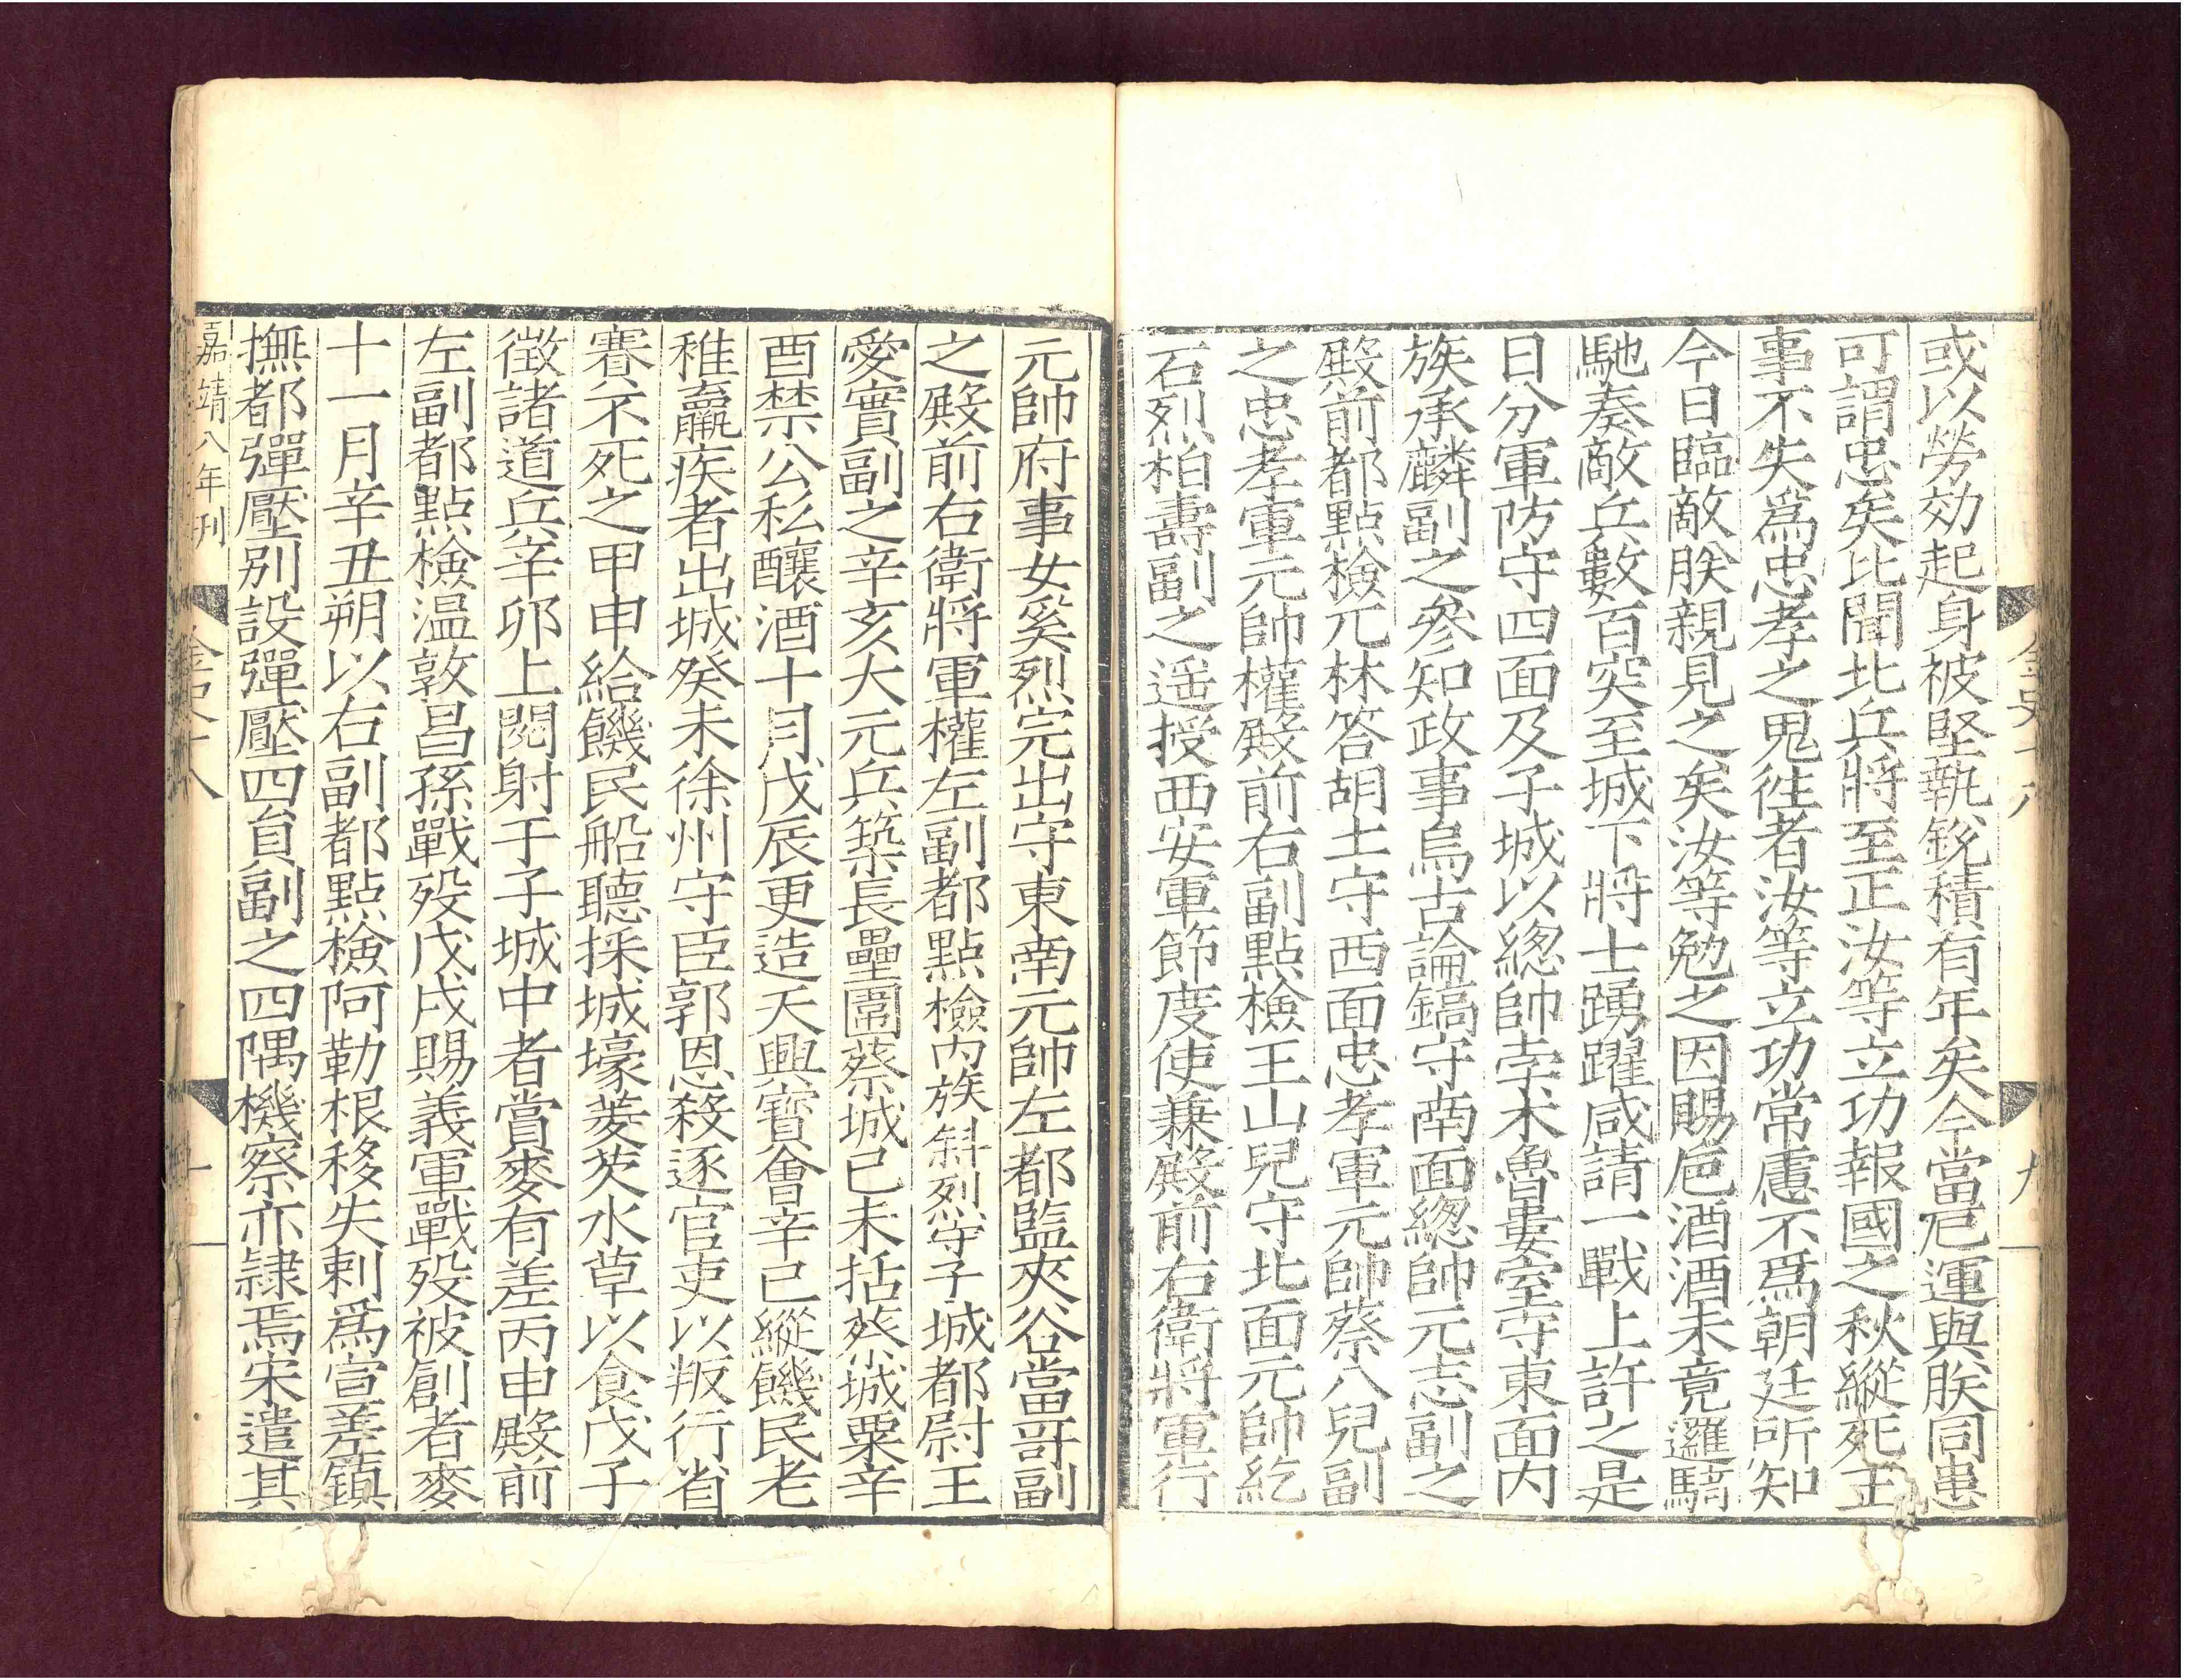 金史十八 九
或以勞効起身被堅執銳積有年矣今當厄運與朕同患
可謂忠矣比聞北兵將至正汝等立功報國之秋縱死王
事不失爲忠孝之鬼徃者汝等立功常慮不爲朝廷所知
今日臨敵朕親見之矣汝等勉之因賜巵酒酒未竟邏騎
馳奏敵兵數百突至城下將士踴躍咸請一戰上許之是
日分軍防守四面及子城以緫帥孛术魯婁室守東面内
族承麟副之叅知政事烏古論鎬守南面緫帥元志副之
殿前都點檢兀林答胡土守西面忠孝軍元帥蔡八兒副
之忠孝軍元帥權殿前右副點檢王山兒守北面元帥紇
石烈柏壽副之遥授西安軍節度使兼殿前右衛將軍行
元帥府事女奚烈完出守東南元帥左都監夾谷當哥副
之殿前右衛將軍權左副都點檢内族斜烈守子城都尉王
愛實副之辛亥大元兵築長壘圍蔡城己未括蔡城粟辛
酉禁公私釀酒十月戊辰更造天興寳會辛巳縱饑民老
稚羸疾者出城癸未徐州守臣郭恩殺逐官吏以叛行省
賽不死之甲申給饑民船聽採城壕菱芡水草以食戊子
徵諸道兵辛卯上閱射于子城中者賞麥有差丙申殿前
左副都點檢温敦昌孫戰歿戊戌賜義軍戰歿被創者麥
十一月辛丑朔以右副都點檢阿勒根移失剌爲宣差鎮
撫都彈壓別設彈壓四員副之四隅機察亦隷焉宋遣其
嘉靖八年刊 金史十八 十